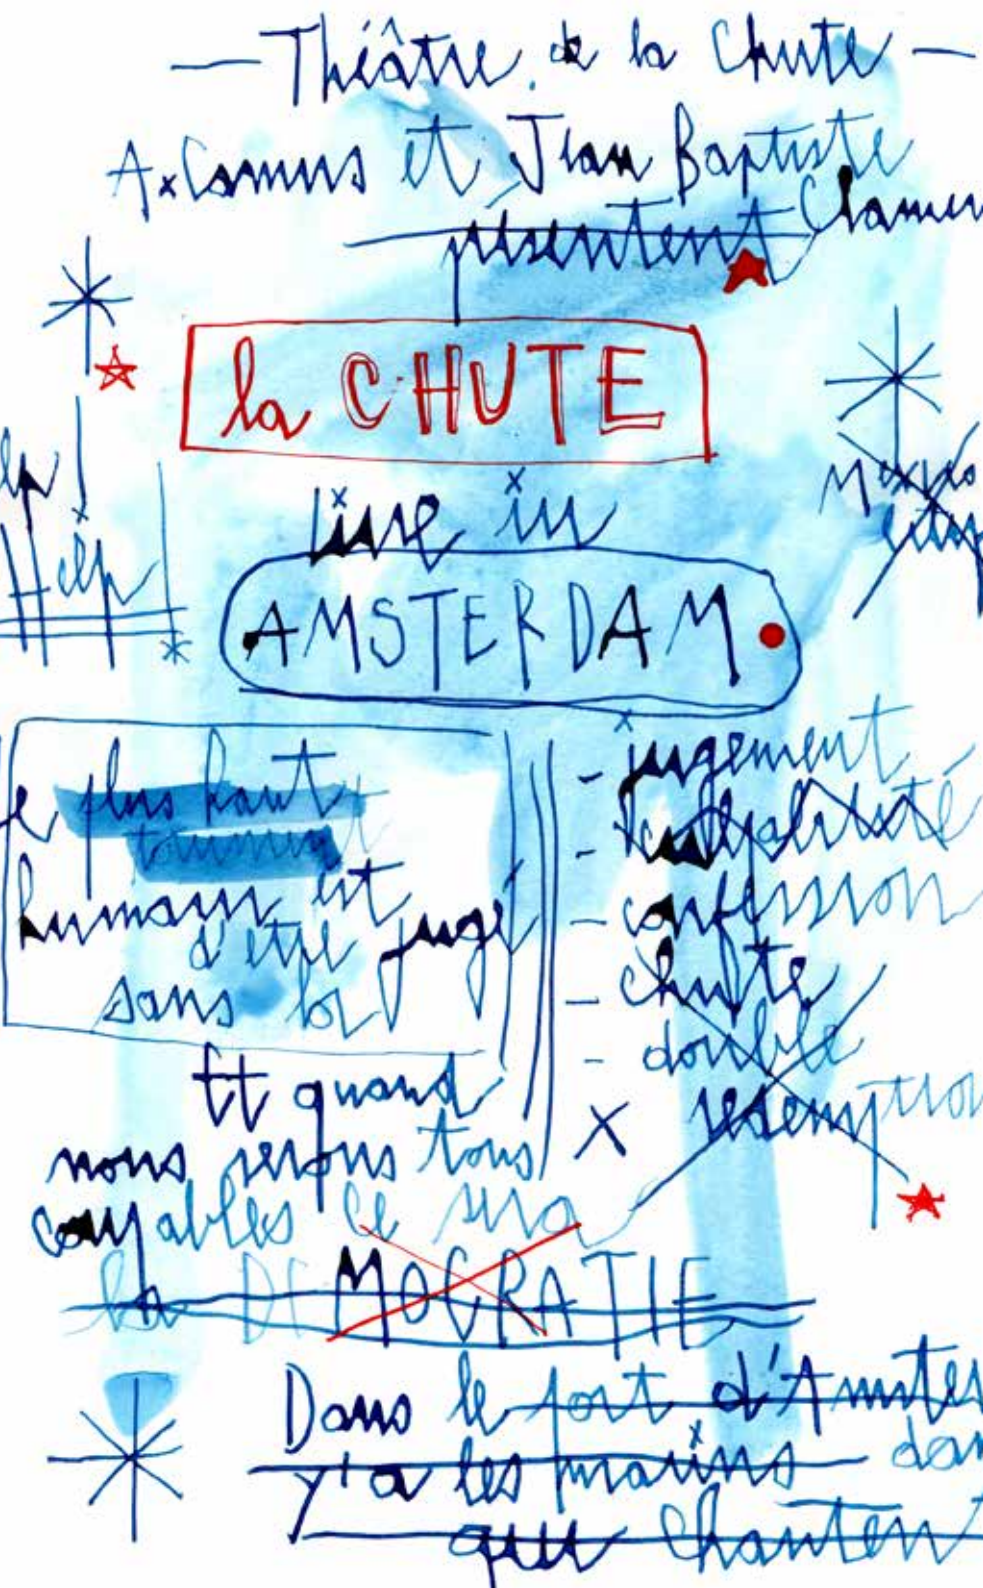 — Théâtre de la Chute —
A. Camus et Jean Baptiste
Clamen
présentent
la CHUTE
live in
AMSTERDAM
Help
Mexico
city
le plus haut
tourment
humain est
d'être jugé
sans loi
- jugement
- culpabilité
- confession
- chute
- double
X redemption
Et quand
nous serons tous
coupables ce sera
la DEMOCRATIE
Dans le port d'Amster
y'a les marins
qui chanten